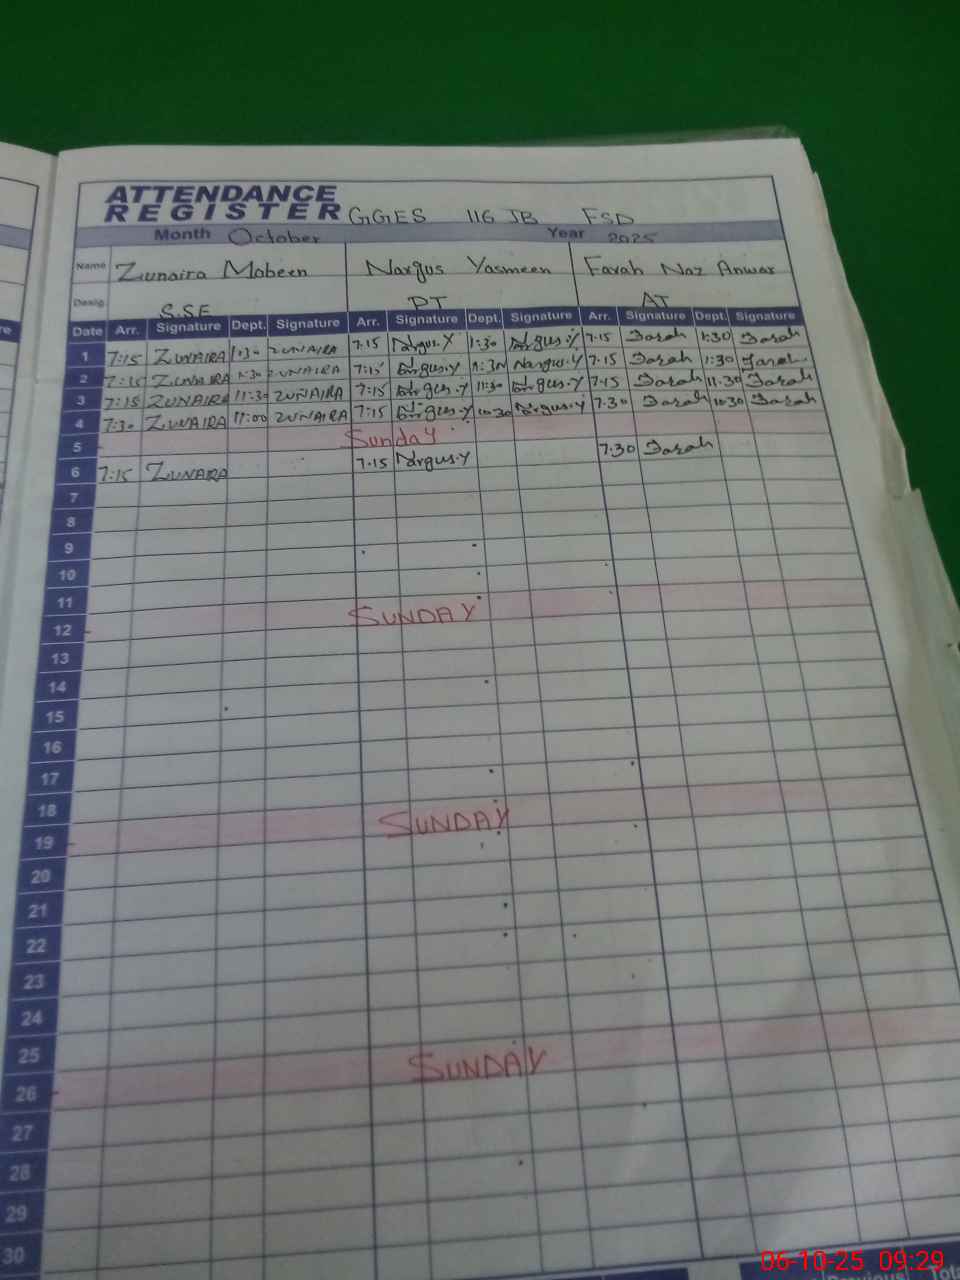 ATTENDANCE
REGISTER GGES 116 JB FSD
Month October Year 2025
Name Zunaira Mobeen Nargus Yasmeen Farah Naz Anwar
Desig. S.SE PT AT
Date Arr. Signature Dept. Signature Arr. Signature Dept. Signature Arr. Signature Dept. Signature
1 7:15 ZUNAIRA 1:30 ZUNAIRA 7:15 Nargus.Y 1:30 Nargus.Y 7:15 Farah 1:30 Farah
2 7:15 ZUNAIRA 1:30 ZUNAIRA 7:15 Nargus.Y 1:30 Nargus.Y 7:15 Farah 1:30 Farah
3 7:15 ZUNAIRA 11:30 ZUNAIRA 7:15 Nargus.Y 11:30 Nargus.Y 7:15 Farah 11:30 Farah
4 7:30 ZUNAIRA 11:00 ZUNAIRA 7:15 Nargus.Y 10:30 Nargus.Y 7:30 Farah 10:30 Farah
5 Sunday
6 7:15 ZUNARA 7:15 Nargus.Y 7:30 Farah
7
8
9
10
11
12 SUNDAY
13
14
15
16
17
18
19 SUNDAY
20
21
22
23
24
25
26 SUNDAY
27
28
29
30
06-10-25 09:29